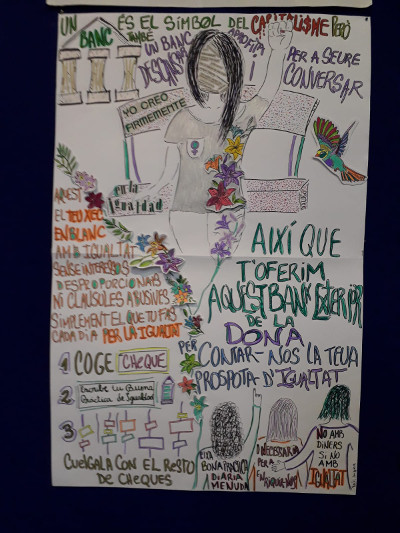 UN BANC ÉS EL SIMBOL DEL CAPITALISME PERÒ
TAMBÉ
UN BANC
DESCANSAR
APROFITA
I
PER A SEURE
CONVERSAR
YO CREO
FIRMEMENTE
en la
igualdad
AQUEST
EL TEU XEC
EN BLANC
AMB IGUALTAT
SENSE INTERESSOS
DESPROPORCIONATS
NI CLAUSOLES ABUSIVES
SIMPLEMENT EL QUE TU FAS
CADA DIA PER LA IGUALTAT
AIXÍ QUE
T'OFERIM
AQUEST BANC
DE LA
DONA
PER
CONTAR-NOS LA TEUA
PROSPOTA D'IGUALTAT
1 COGE CHEQUE
2 Escribe tu Buena
Práctica de Igualdad
3
CUELGALA CON EL RESTO
DE CHEQUES
BONA PRACTICA
DIARIA
MENUDA
I NECESSARIA
PER A
ENRIQUIR-NOS
NO AMB
DINERS
SI NO
AMB
IGUALTAT